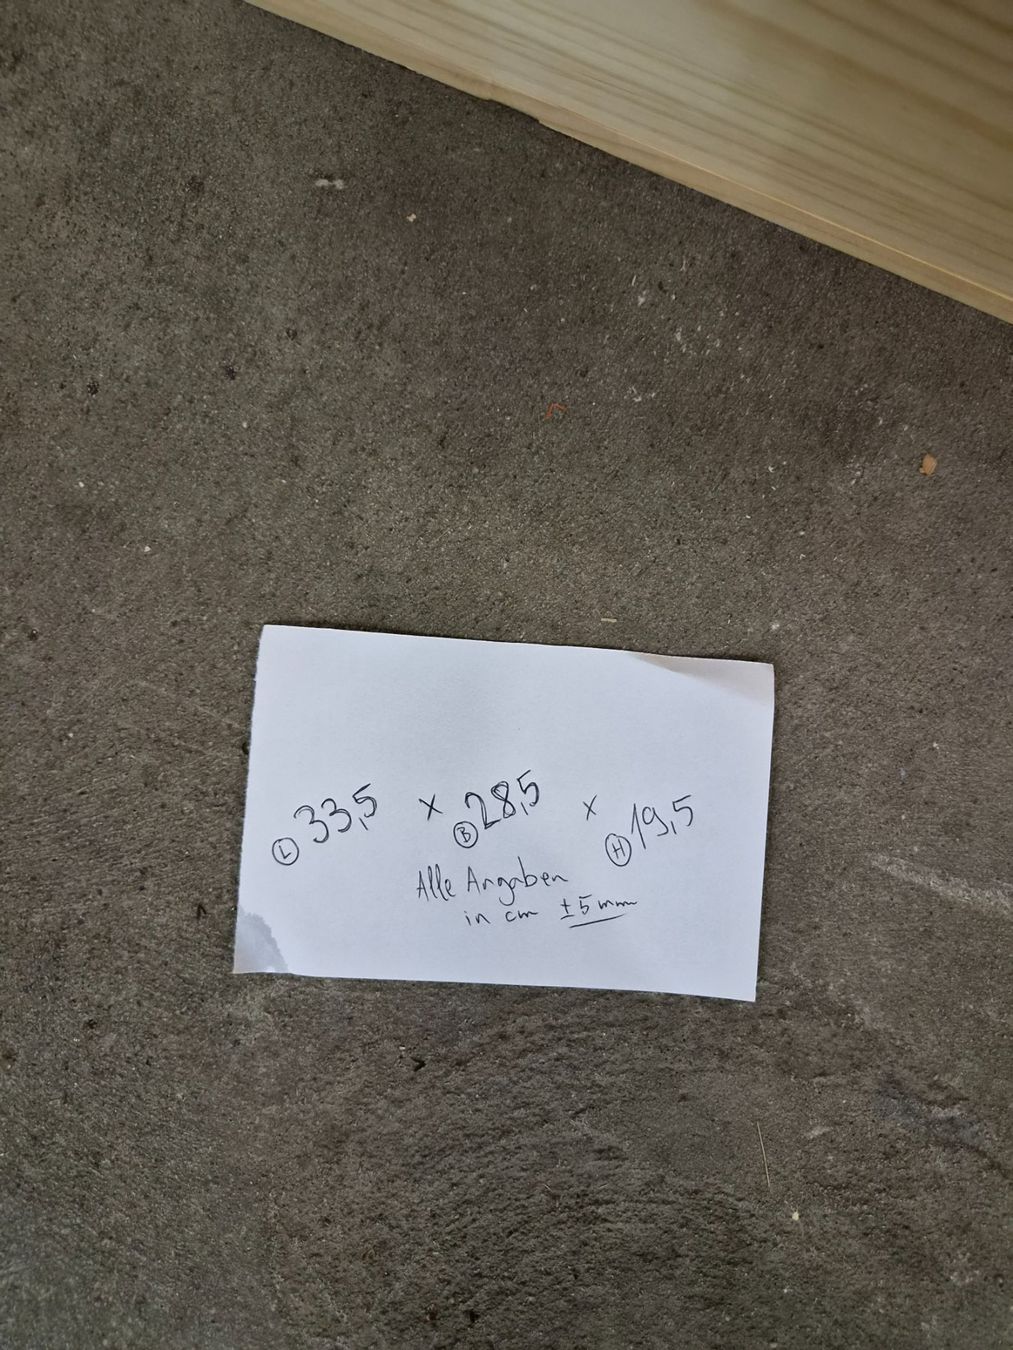 Ⓛ 33,5 x Ⓑ 28,5 x Ⓗ 19,5
Alle Angaben
in cm ±5mm